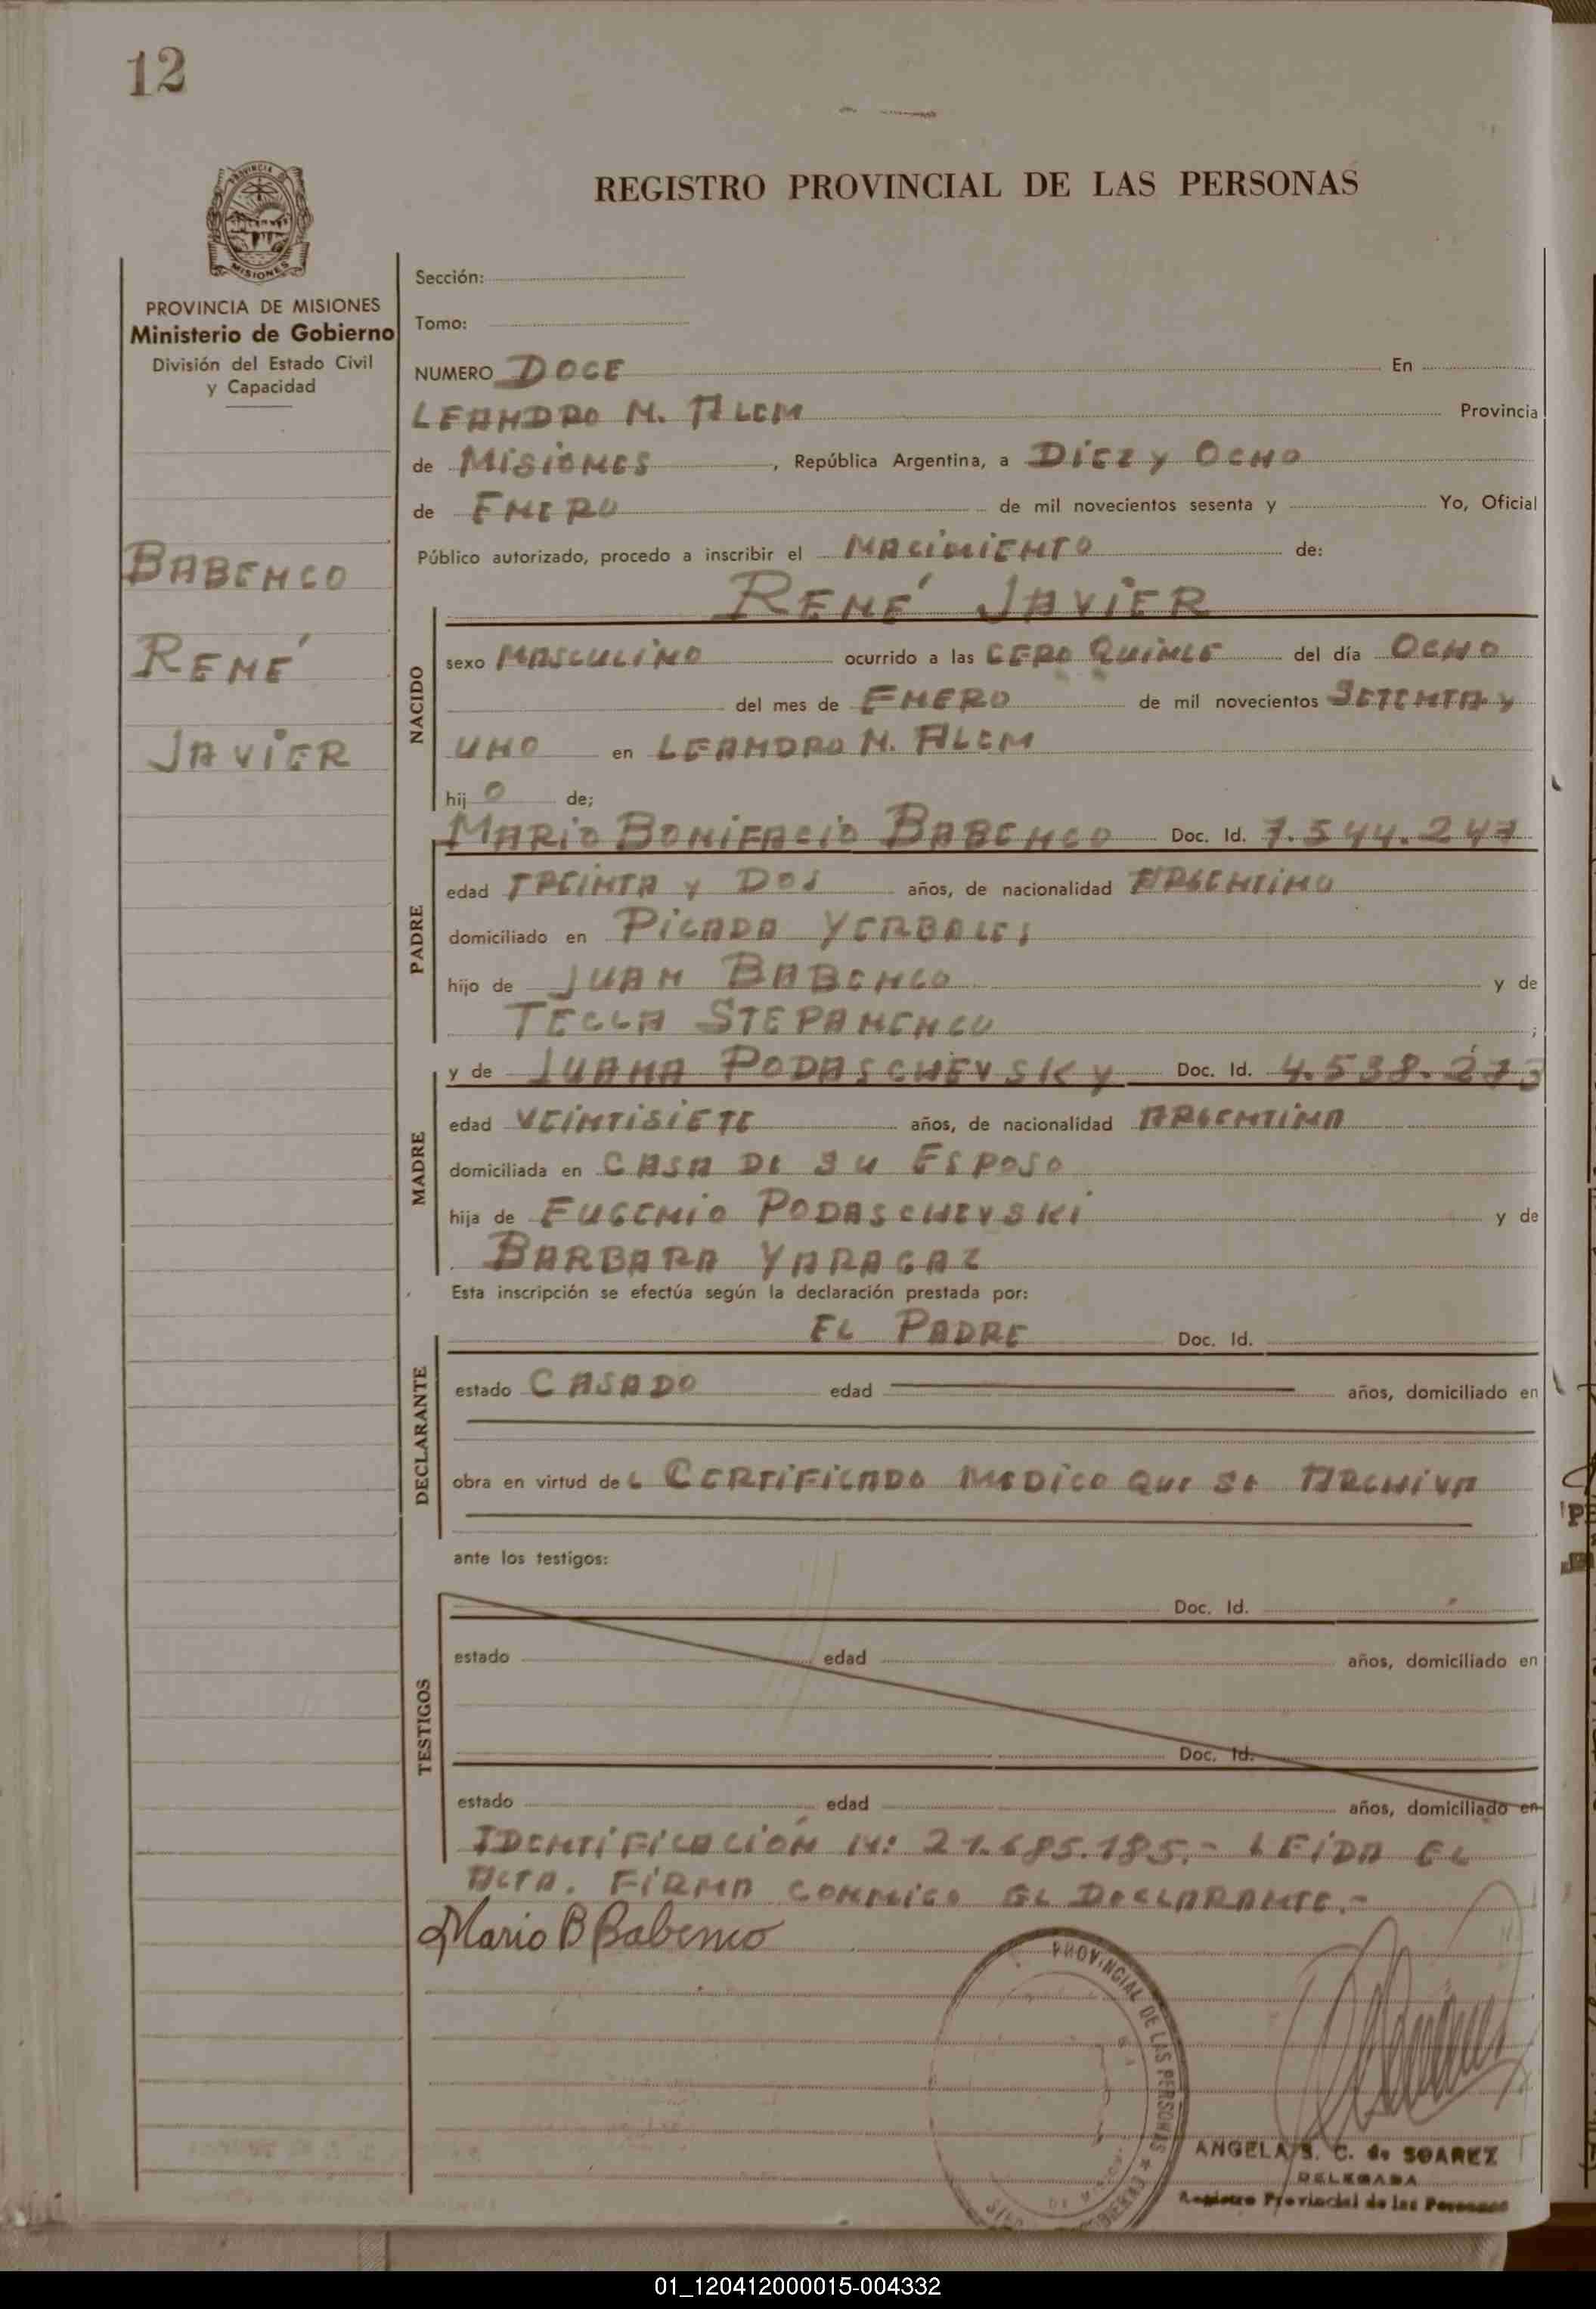 12
REGISTRO PROVINCIAL DE LAS PERSONAS
PROVINCIA DE MISIONES
Ministerio de Gobierno
División del Estado Civil
y Capacidad
BABENCO
RENÉ
JAVIER
Sección:
Tomo:
NUMERO DOCE En
LEANDRO N. ALEM Provincia
de MISIONES, República Argentina, a DIEZ y OCHO
de ENERO de mil novecientos sesenta y Yo, Oficial
Público autorizado, procedo a inscribir el NACIMIENTO de:
RENÉ JAVIER
NACIDO
sexo MASCULINO ocurrido a las CERO QUINCE del día OCHO
del mes de ENERO de mil novecientos SETENTA y
UNO en LEANDRO N. ALEM
hijo de;
PADRE
MARIO BONIFACIO BABENCO Doc. Id. 7.544.247
edad TREINTA y DOS años, de nacionalidad ARGENTINO
domiciliado en PICADA YERBALES
hijo de JUAN BABENCO y de
TECLA STEPANENCO ;
MADRE
y de JUANA PODASCHEVSKY Doc. Id. 4.538.273
edad VEINTISIETE años, de nacionalidad ARGENTINA
domiciliada en CASA DE SU ESPOSO
hija de EUGENIO PODASCHEVSKI y de
BARBARA YARAGAZ
Esta inscripción se efectúa según la declaración prestada por:
DECLARANTE
EL PADRE Doc. Id.
estado CASADO edad años, domiciliado en
obra en virtud del CERTIFICADO MEDICO QUE SE ARCHIVA
ante los testigos:
TESTIGOS
Doc. Id.
estado edad años, domiciliado en
Doc. Id.
estado edad años, domiciliado en
IDENTIFICACIÓN N: 21.685.185.- LEIDA EL
ACTA. FIRMA CONMIGO EL DECLARANTE.-
Mario B Babenco
PROVINCIAL DE LAS PERSONAS
ANGELA S. C. de SOAREZ
DELEGADA
Registro Provincial de las Personas
01_120412000015-004332